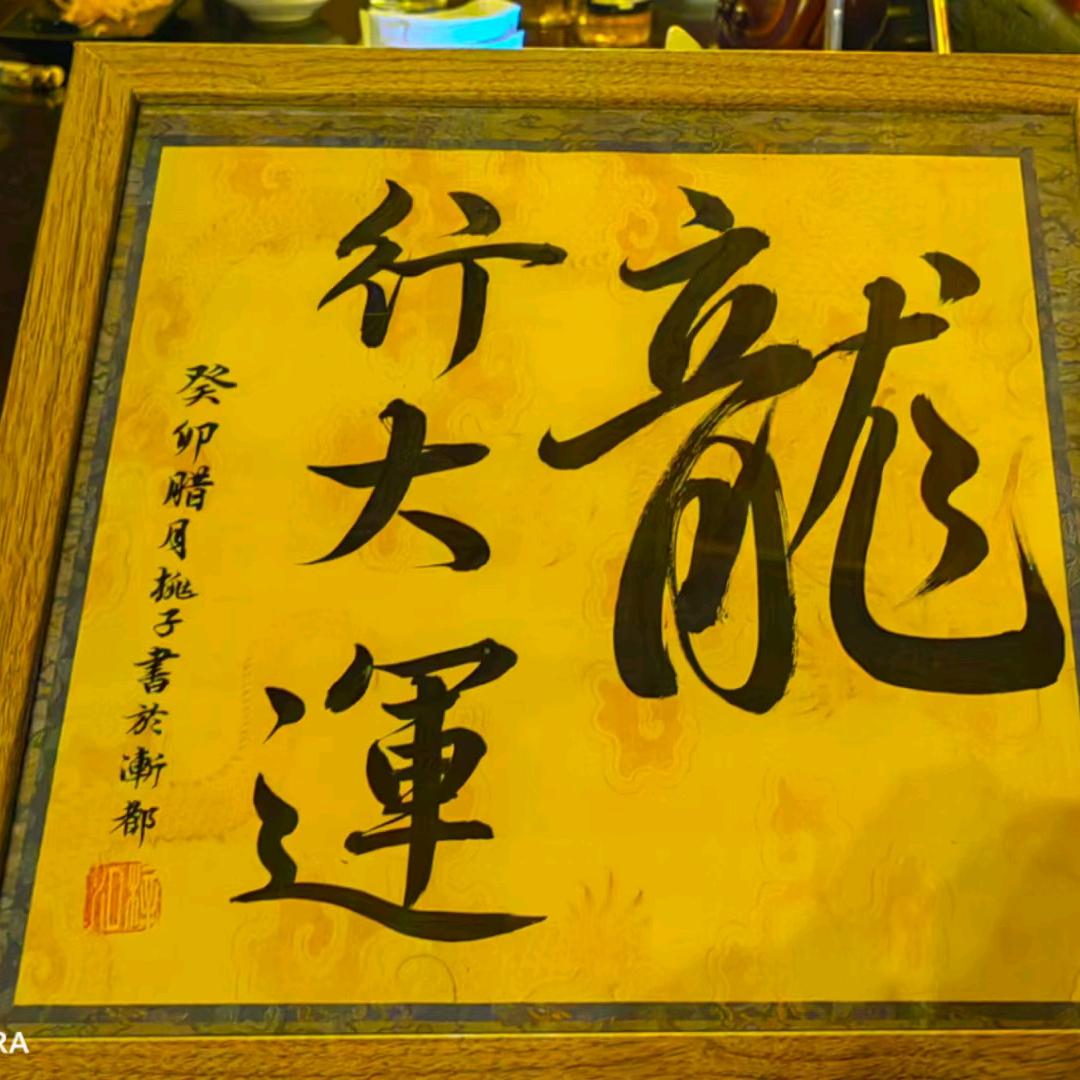 龍
行大運
癸卯腊月挑子書於漸都
RA